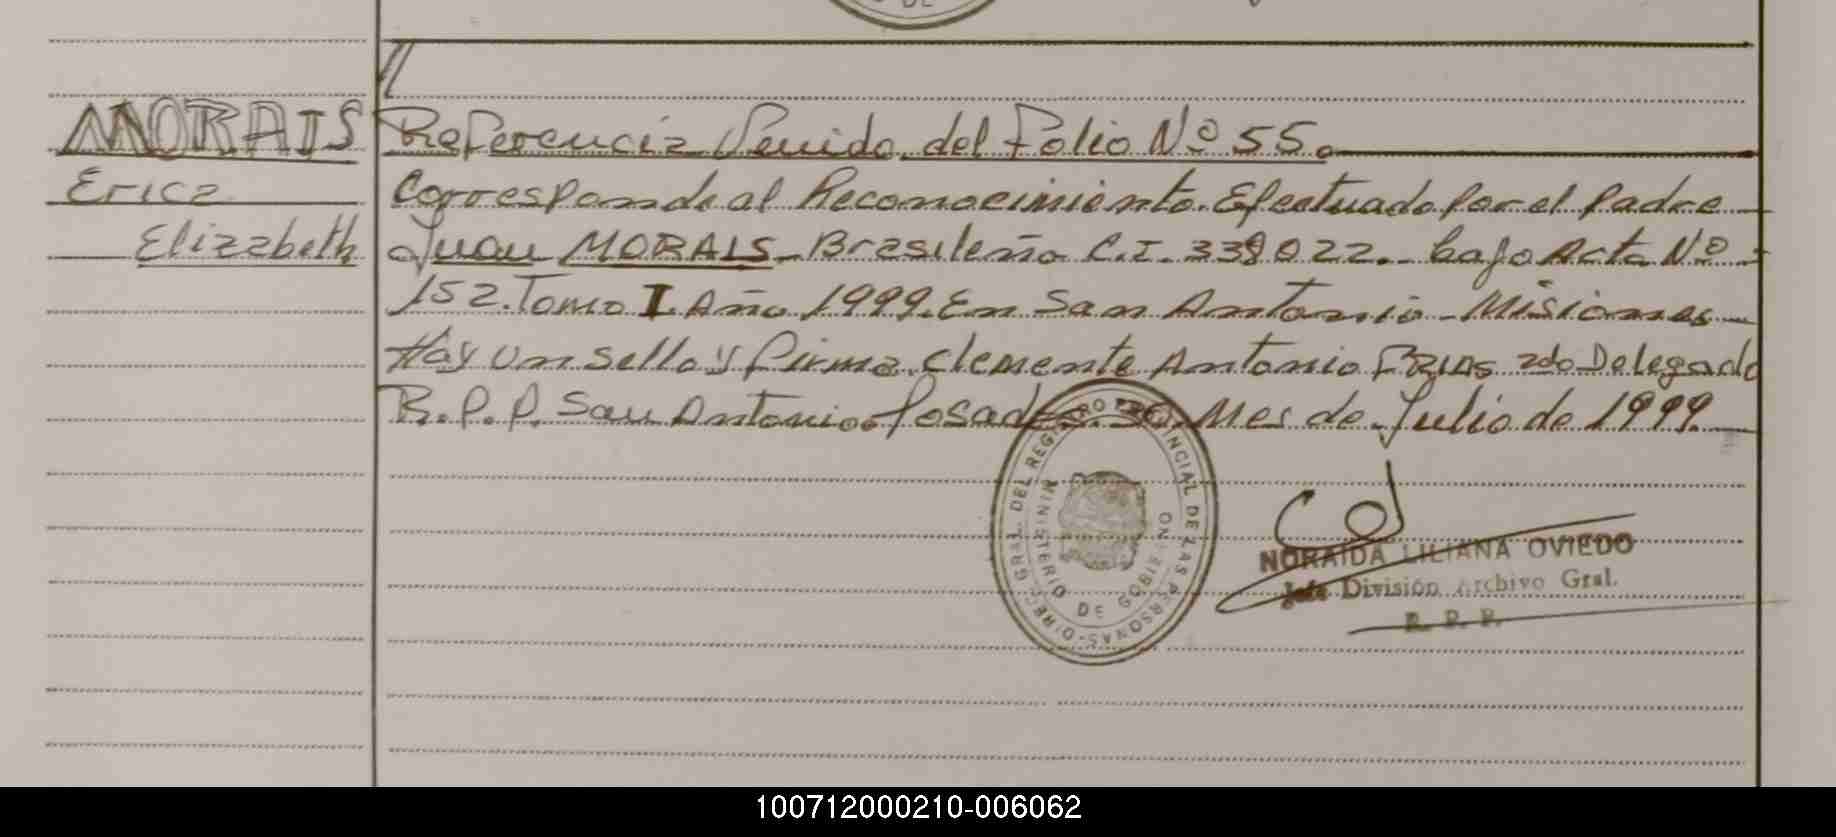 DE
MORAIS
Erica
Elizabeth
Referencia Venido del Folio Nº 55.
Corresponde al Reconocimiento Efectuado por el Padre
Juan MORAIS - Brasileño C.I. 339022. bajo Acta Nº
152. Tomo I. Año 1999. En San Antonio - Misiones
Hay un sello y firma. Clemente Antonio FRIAS 2do Delegado
R.P.P. San Antonio. Posadas. 30, Mes de Julio de 1999.
DIREC. GRAL. DEL REGISTRO PROVINCIAL DE LAS PERSONAS
MINISTERIO DE GOBIERNO
NORAIDA LILIANA OVIEDO
Jefe División Archivo Gral.
R. P. P.
100712000210-006062